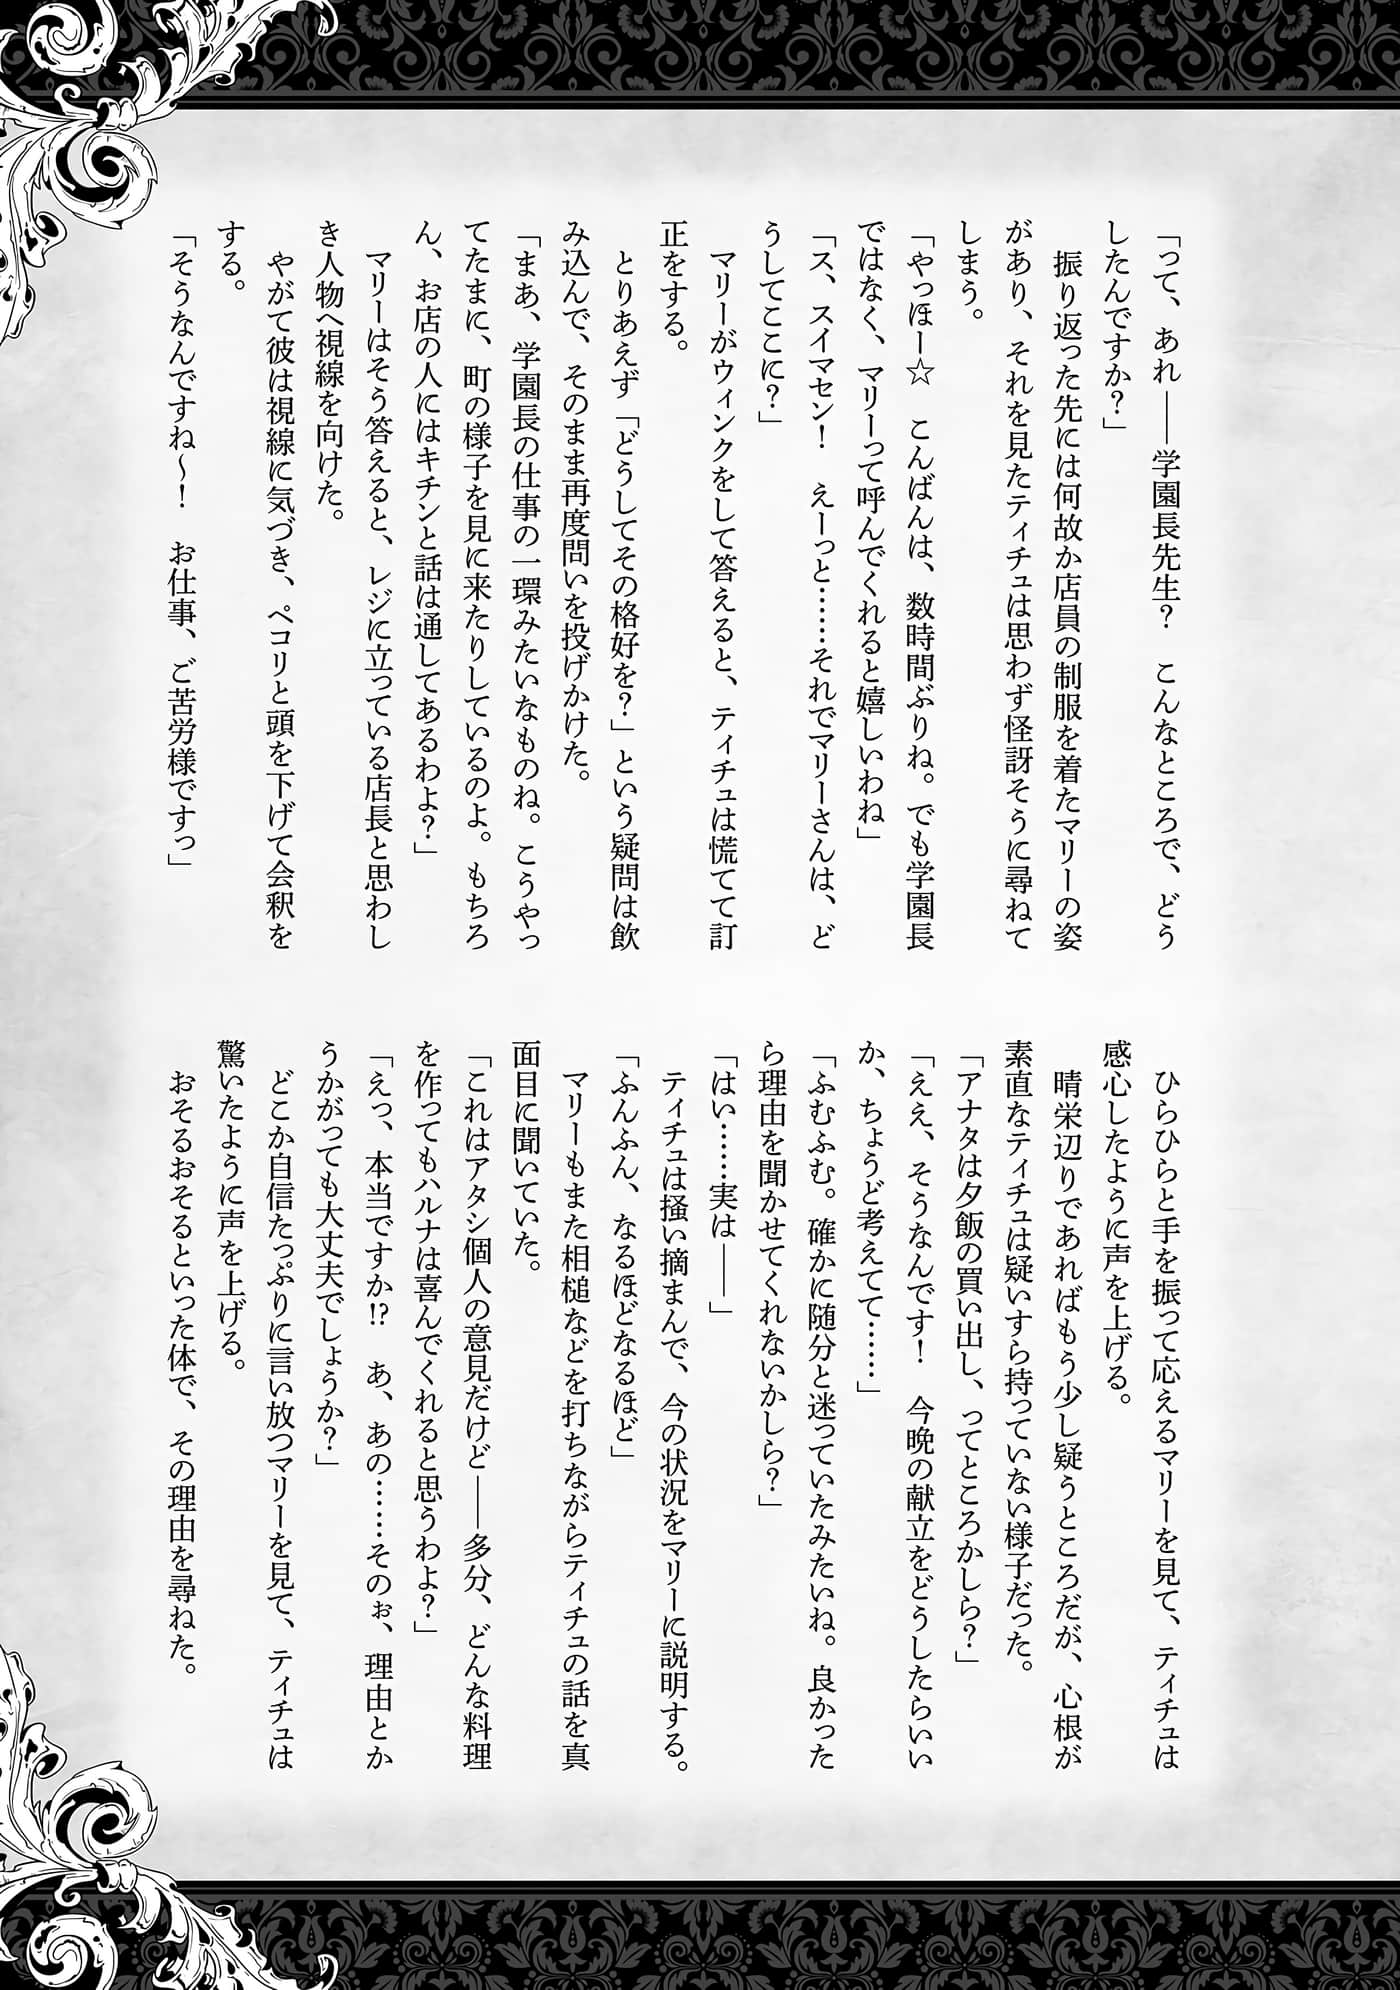 「って、あれ――学園長先生？　こんなところで、どう
したんですか？」
　振り返った先には何故か店員の制服を着たマリーの姿
があり、それを見たティチュは思わず怪訝そうに尋ねて
しまう。
「やっほー☆　こんばんは、数時間ぶりね。でも学園長
ではなく、マリーって呼んでくれると嬉しいわね」
「ス、スイマセン！　えーっと……それでマリーさんは、ど
うしてここに？」
　マリーがウィンクをして答えると、ティチュは慌てて訂
正をする。
　とりあえず「どうしてその格好を？」という疑問は飲
み込んで、そのまま再度問いを投げかけた。
「まあ、学園長の仕事の一環みたいなものね。こうやっ
てたまに、町の様子を見に来たりしているのよ。もちろ
ん、お店の人にはキチンと話は通してあるわよ？」
　マリーはそう答えると、レジに立っている店長と思わし
き人物へ視線を向けた。
　やがて彼は視線に気づき、ペコリと頭を下げて会釈を
する。
「そうなんですね～！　お仕事、ご苦労様ですっ」
　ひらひらと手を振って応えるマリーを見て、ティチュは
感心したように声を上げる。
　晴栄辺りであればもう少し疑うところだが、心根が
素直なティチュは疑いすら持っていない様子だった。
「アナタは夕飯の買い出し、ってところかしら？」
「ええ、そうなんです！　今晩の献立をどうしたらいい
か、ちょうど考えてて……」
「ふむふむ。確かに随分と迷っていたみたいね。良かった
ら理由を聞かせてくれないかしら？」
「はい……実は――」
　ティチュは掻い摘まんで、今の状況をマリーに説明する。
「ふんふん、なるほどなるほど」
　マリーもまた相槌などを打ちながらティチュの話を真
面目に聞いていた。
「これはアタシ個人の意見だけど――多分、どんな料理
を作ってもハルナは喜んでくれると思うわよ？」
「えっ、本当ですか!?　あ、あの……そのぉ、理由とか
うかがっても大丈夫でしょうか？」
　どこか自信たっぷりに言い放つマリーを見て、ティチュは
驚いたように声を上げる。
　おそるおそるといった体で、その理由を尋ねた。